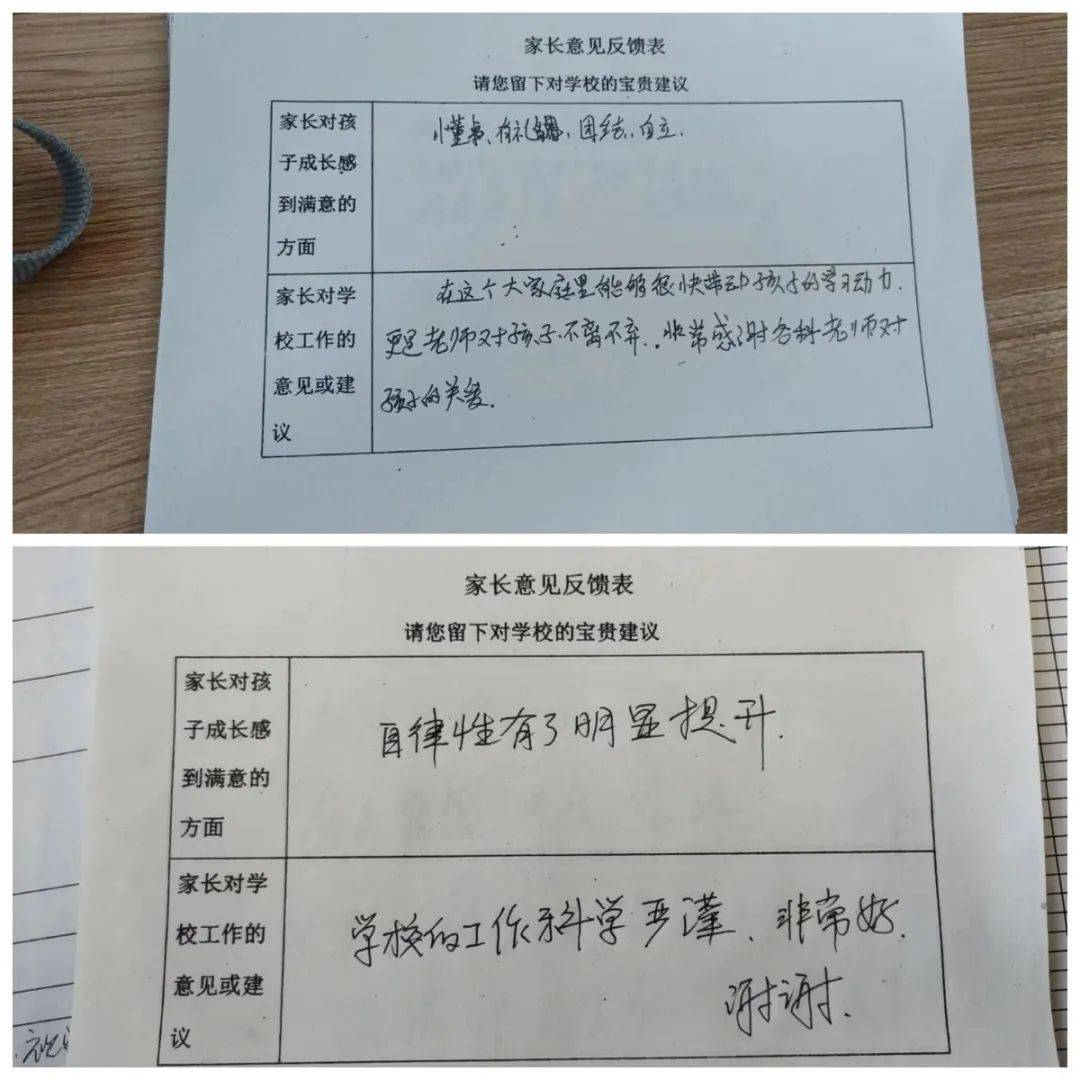 家长意见反馈表
请您留下对学校的宝贵建议
家长对孩
子成长感
到满意的
方面
懂事、有礼貌、团结、自立.
家长对学
校工作的
意见或建
议
在这个大家庭里能够很快带动孩子的学习动力.
更是老师对孩子不离不弃..非常感谢各科老师对
孩子的关爱.
家长意见反馈表
请您留下对学校的宝贵建议
家长对孩
子成长感
到满意的
方面
自律性有了明显提升.
家长对学
校工作的
意见或建
议
学校的工作科学严谨、非常好.
谢谢.